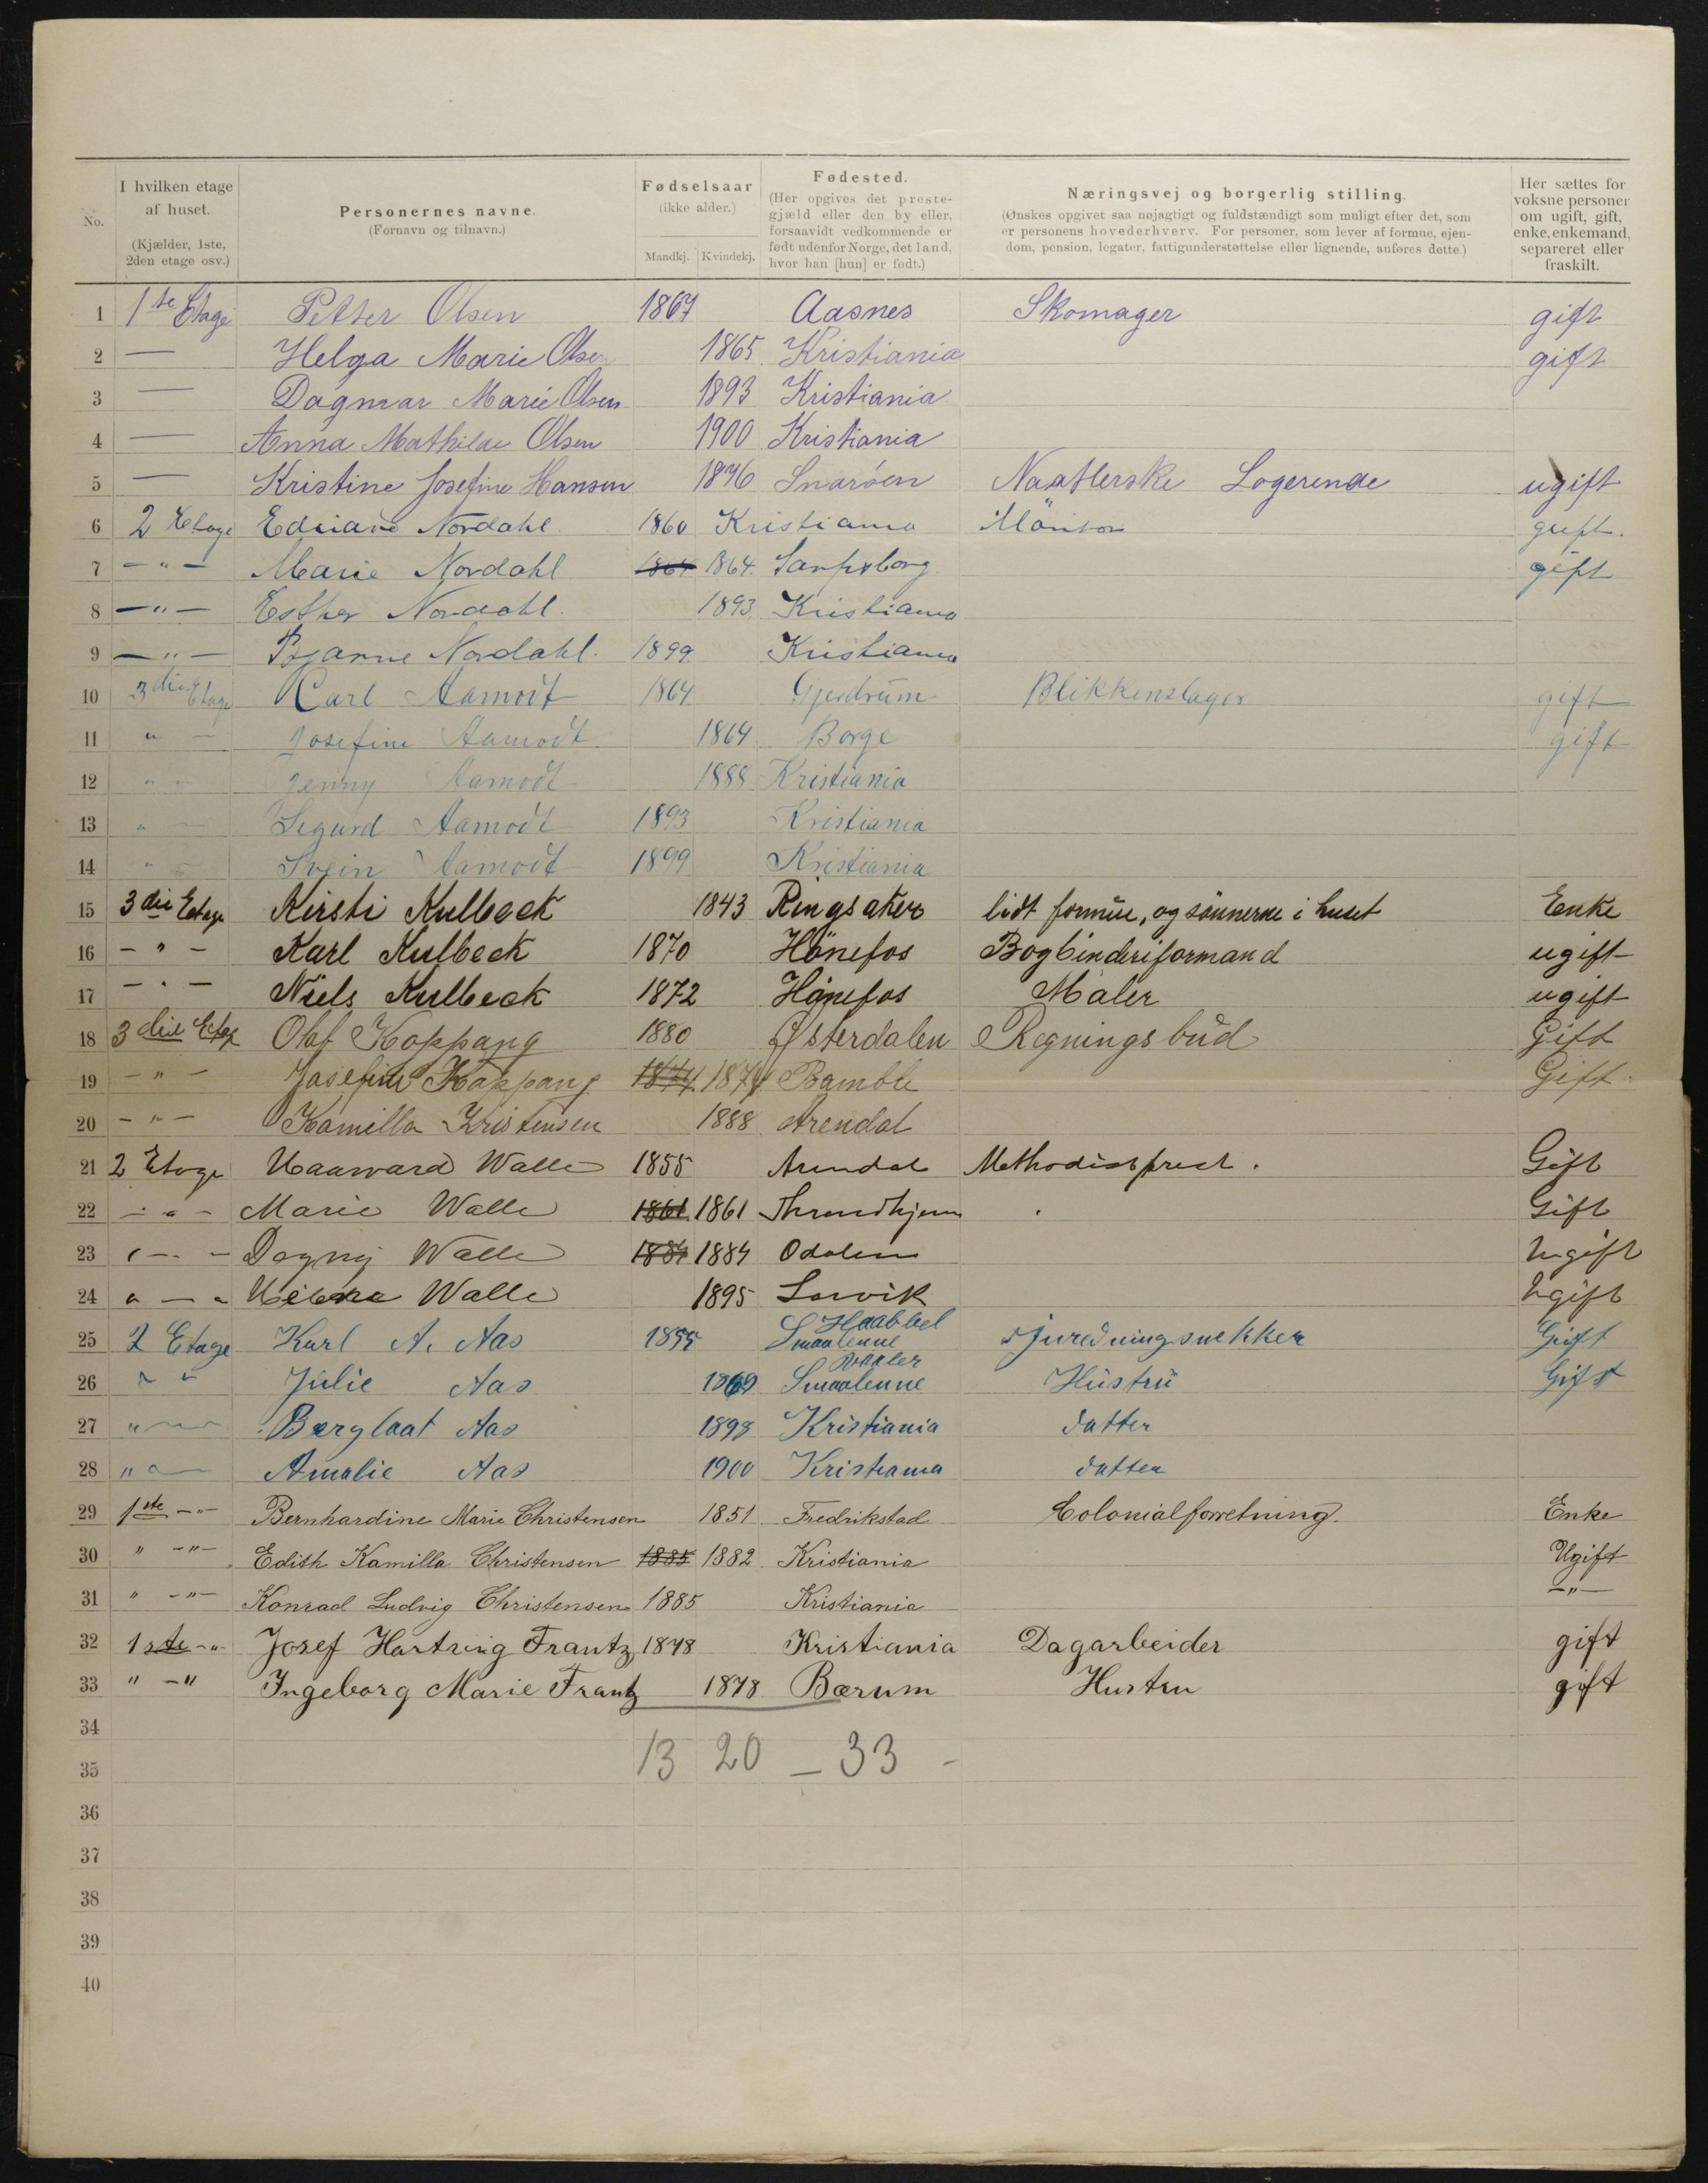 No.
I hvilken etage af huset.
(Kjælder, 1ste, 2den etage osv.)
Personernes navne.
(Fornavn og tilnavn.)
Fødselsaar
(ikke alder.)
Mandkj. Kvindekj.
Fødested.
(Her opgives det prestegjæld eller den by eller, forsaavidt vedkommende er født udenfor Norge, det land, hvor han [hun] er født.)
Næringsvej og borgerlig stilling.
(Ønskes opgivet saa nøjagtigt og fuldstændigt som muligt efter det, som er personens hovederhverv. For personer, som lever af formue, ejendom, pension, legater, fattigunderstøttelse eller lignende, anføres dette.)
Her sættes for voksne personer om ugift, gift, enke, enkemand, separeret eller fraskilt.
1 1ste Etage Petter Olsen 1867 Aasnes Skomager gift
2 — Helga Marie Olsen 1865 Kristiania gift
3 — Dagmar Marie Olsen 1893 Kristiania
4 — Anna Mathilde Olsen 1900 Kristiania
5 — Kristine Josefine Hansen 1876 Snarøen Naatlerske Logerende ugift
6 2 Etage Nordahl 1860 Kristiania gift.
7 — " — Marie Nordahl 1864 1864. Sarpsborg gift
8 — " — Esther Nordahl. 1893 Kristiania
9 — " — Bjarne Nordahl. 1899 Kristiania
10 3die Etage Carl Aamodt 1864 Gjerdrum Blikkenslager gift
11 " — Josefine Aamodt 1864 Borge gift
12 " " Jenny Aamodt 1888 Kristiania
13 " — Sigurd Aamodt 1893 Kristiania
14 " — Svein Aamodt 1899 Kristiania
15 3die Etage Kirsti Kulbeck 1843 Ringsaker lidt formue, og sönnerne i huset Enke
16 — " — Karl Kulbeck 1870 Hönefos Bogbinderiformand ugift
17 — " — Niels Kulbeck 1872 Hönefos Maler ugift
18 3die Etag Olaf Koppang 1880 Østerdalen Regningsbud Gift
19 — " — Josefine Koppang 1874 1874 Bamble Gift
20 — " — Kamilla Kristensen 1888 Arendal
21 2 Etage Haavard Walle 1855 Arendal Methodistprest. Gift
22 — " — Marie Walle 1861 1861 Throndhjem Gift
23 " — — Dagny Walle 1884 1884 Odalen Ugift
24 " — " Walle 1895 Larvik Ugift
25 2 Etage Karl A. Aas 1855 Haabbel Smaalenne gift
26 " " Julie Aas 1869 Vaaler Smaalenne Hüstrü Gift
27 " — Bergloat Aas 1898 Kristiania datter
28 " — Amalie Aas 1900 Kristiania datter
29 1ste — " — Bernhardine Marie Christensen 1851 Fredrikstad Colonialforretning. Enke
30 " — " — Edith Kamilla Christensen 1885 1882 Kristiania Ugift
31 " — " — Konrad Ludvig Christensen 1885 Kristiania — " —
32 1ste — " Josef Hartvig Frantz 1878 Kristiania Dagarbeider gift
33 " — " Ingeborg Marie Frantz 1878 Bærum Hustru gift
34
35 13 20 — 33 —
36
37
38
39
40